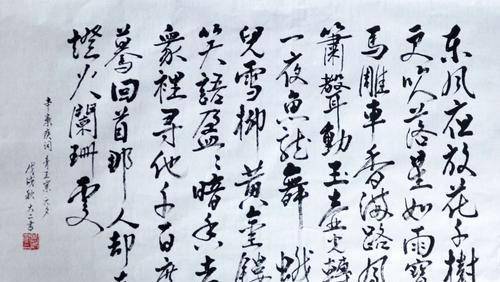 东風夜放花千樹
更吹落星如雨寶
馬雕車香滿路鳳
簫聲動玉壺光轉
一夜魚龍舞 蛾
兒雪柳黃金縷
笑語盈々暗香去
衆裡尋他千百度
驀回首那人却在
燈火闌珊處
辛棄疾词青玉案元夕
戊戌秋大二書